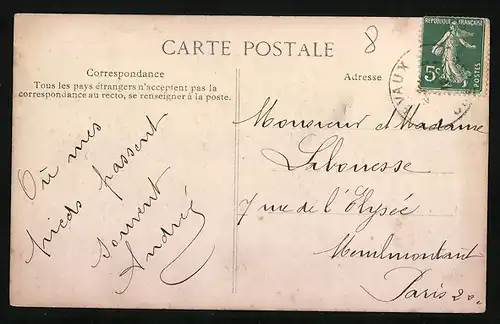 8
CARTE POSTALE
RÉPUBLIQUE FRANÇAISE
5c
POSTES
VAUX
Correspondance
Tous les pays étrangers n'acceptent pas la
correspondance au recto, se renseigner à la poste.
Où mes
pieds passent
souvent
Andrée
Adresse
Monsieur et Madame
Labouesse
7 rue de l'Elysée
Menilmontant
Paris 20.